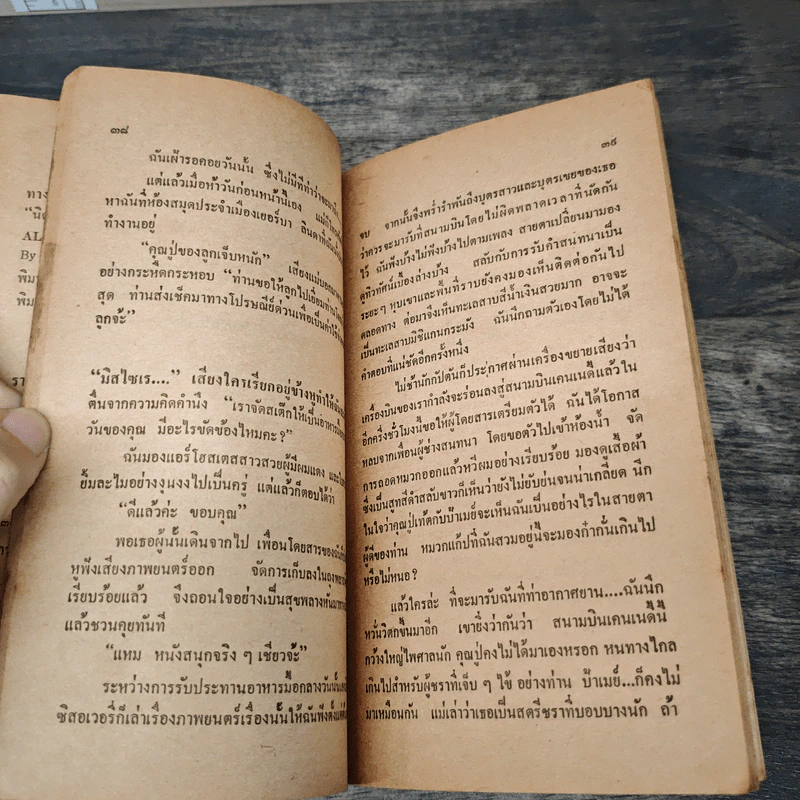 ทาง
“นิย
AL
By
พิมพ
พิมพ
รา
๓๘
ฉันเฝ้ารอคอยวันนั้น ซึ่งไม่มีทีท่าว่าจะมา
แต่แล้วเมื่อห้าวันก่อนหน้านี้เอง แม่ก็โทร
หาฉันที่ห้องสมุดประจำเมืองเยอร์บา ลินดาที่ฉัน
ทำงานอยู่
“คุณปู่ของลูกเจ็บหนัก” เสียงแม่บอกมา
อย่างกระหืดกระหอบ “ท่านขอให้ลูกไปเยี่ยมท่าน
สุด ท่านส่งเช็คมาทางไปรษณีย์ด่วนเพื่อเป็นค่าใช้
ลูกจ้ะ”
“มิสไซเร....” เสียงใครเรียกอยู่ข้างหูทำให้ฉัน
ตื่นจากความคิดคำนึง “เราจัดสเต๊กให้เป็นอาหาร
วันของคุณ มีอะไรขัดข้องไหมคะ?”
ฉันมองแอร์โฮสเตสสาวสวยผู้มีผมแดง และ
ยิ้มละไมอย่างงุนงงไปเป็นครู่ แต่แล้วก็ตอบได้ว่า
“ดีแล้วค่ะ ขอบคุณ”
พอเธอผู้นั้นเดินจากไป เพื่อนโดยสารของฉัน
หูฟังเสียงภาพยนตร์ออก จัดการเก็บลงในถุง
เรียบร้อยแล้ว จึงถอนใจอย่างเป็นสุขพลางหันมา
แล้วชวนคุยทันที
“แหม หนังสนุกจริง ๆ เชียวจ้ะ”
ระหว่างการรับประทานอาหารมื้อกลางวันนั้น
ซิสอเวอรี่ก็เล่าเรื่องภาพยนตร์เรื่องนั้นให้ฉันฟังตั้งแต่ต้น
๓๙
จบ จากนั้นจึงพร่ำรำพันถึงบุตรสาวและบุตรเขยของเธอ
ว่าควรจะมารับที่สนามบินโดยไม่ผิดพลาดเวลาที่นัดกัน
ไว้ ฉันฟังบ้างไม่ฟังบ้างไปตามเพลง สายตาเปลี่ยนมามอง
ดูทิวทัศน์เบื้องล่างบ้าง สลับกับการรับคำสนทนาเป็น
ระยะๆ หุบเขาและพื้นที่ราบยังคงมองเห็นติดต่อกันไป
ตลอดทาง ต่อมาจึงเห็นทะเลสาบสีน้ำเงินสวยมาก อาจจะ
เป็นทะเลสาบมิชิแกนกระมัง ฉันนึกถามตัวเองโดยไม่ได้
คำตอบที่แน่ชัดอีกครั้งหนึ่ง
ไม่ช้านักกัปตันก็ประกาศผ่านเครื่องขยายเสียงว่า
เครื่องบินของเรากำลังจะร่อนลงสู่สนามบินเคนเนดี้แล้วใน
อีกครึ่งชั่วโมงนี้ขอให้ผู้โดยสารเตรียมตัวได้ ฉันได้โอกาส
หลบจากเพื่อนผู้ช่างสนทนา โดยขอตัวไปเข้าห้องน้ำ จัด
การถอดหมวกออกแล้วหวีผมอย่างเรียบร้อย มองดูเสื้อผ้า
ซึ่งเป็นสูทสีดำสลับขาวก็เห็นว่ายังไม่ยับย่นจนน่าเกลียด นึก
ในใจว่าคุณปู่เท็ดกับป้าเมย์จะเห็นฉันเป็นอย่างไรในสายตา
ผู้ดีของท่าน หมวกแก๊ปที่ฉันสวมอยู่นี้จะมองก๋ากั่นเกินไป
หรือไม่หนอ?
แล้วใครล่ะ ที่จะมารับฉันที่ท่าอากาศยาน....ฉันนึก
หวั่นวิตกขึ้นมาอีก เขายิ่งว่ากันว่า สนามบินเคนเนดี้นี้
กว้างใหญ่ไพศาลนัก คุณปู่คงไม่ได้มาเองหรอก หนทางไกล
เกินไปสำหรับผู้ชราที่เจ็บ ๆ ไข้ อย่างท่าน ป้าเมย์...ก็คงไม่
มาเหมือนกัน แม่เล่าว่าเธอเป็นสตรีชราที่บอบบางนัก ถ้า